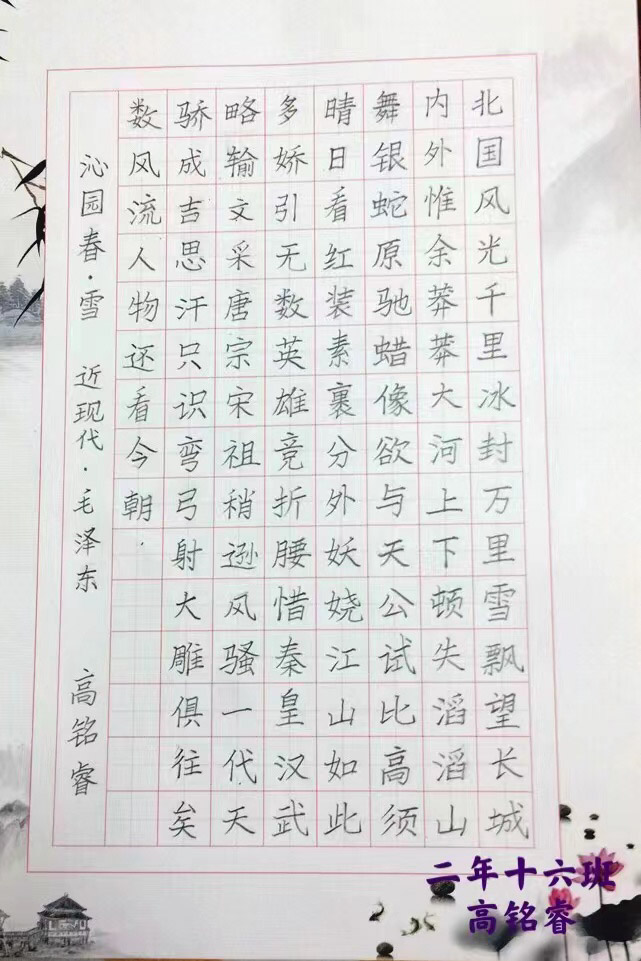 北国风光千里冰封万里雪飘望长城
内外惟余莽莽大河上下顿失滔滔山
舞银蛇原驰蜡像欲与天公试比高须
晴日看红装素裹分外妖娆江山如此
多娇引无数英雄竞折腰惜秦皇汉武
略输文采唐宗宋祖稍逊风骚一代天
骄成吉思汗只识弯弓射大雕俱往矣
数风流人物还看今朝.
沁园春·雪 近现代·毛泽东 高铭睿
二年十六班
高铭睿